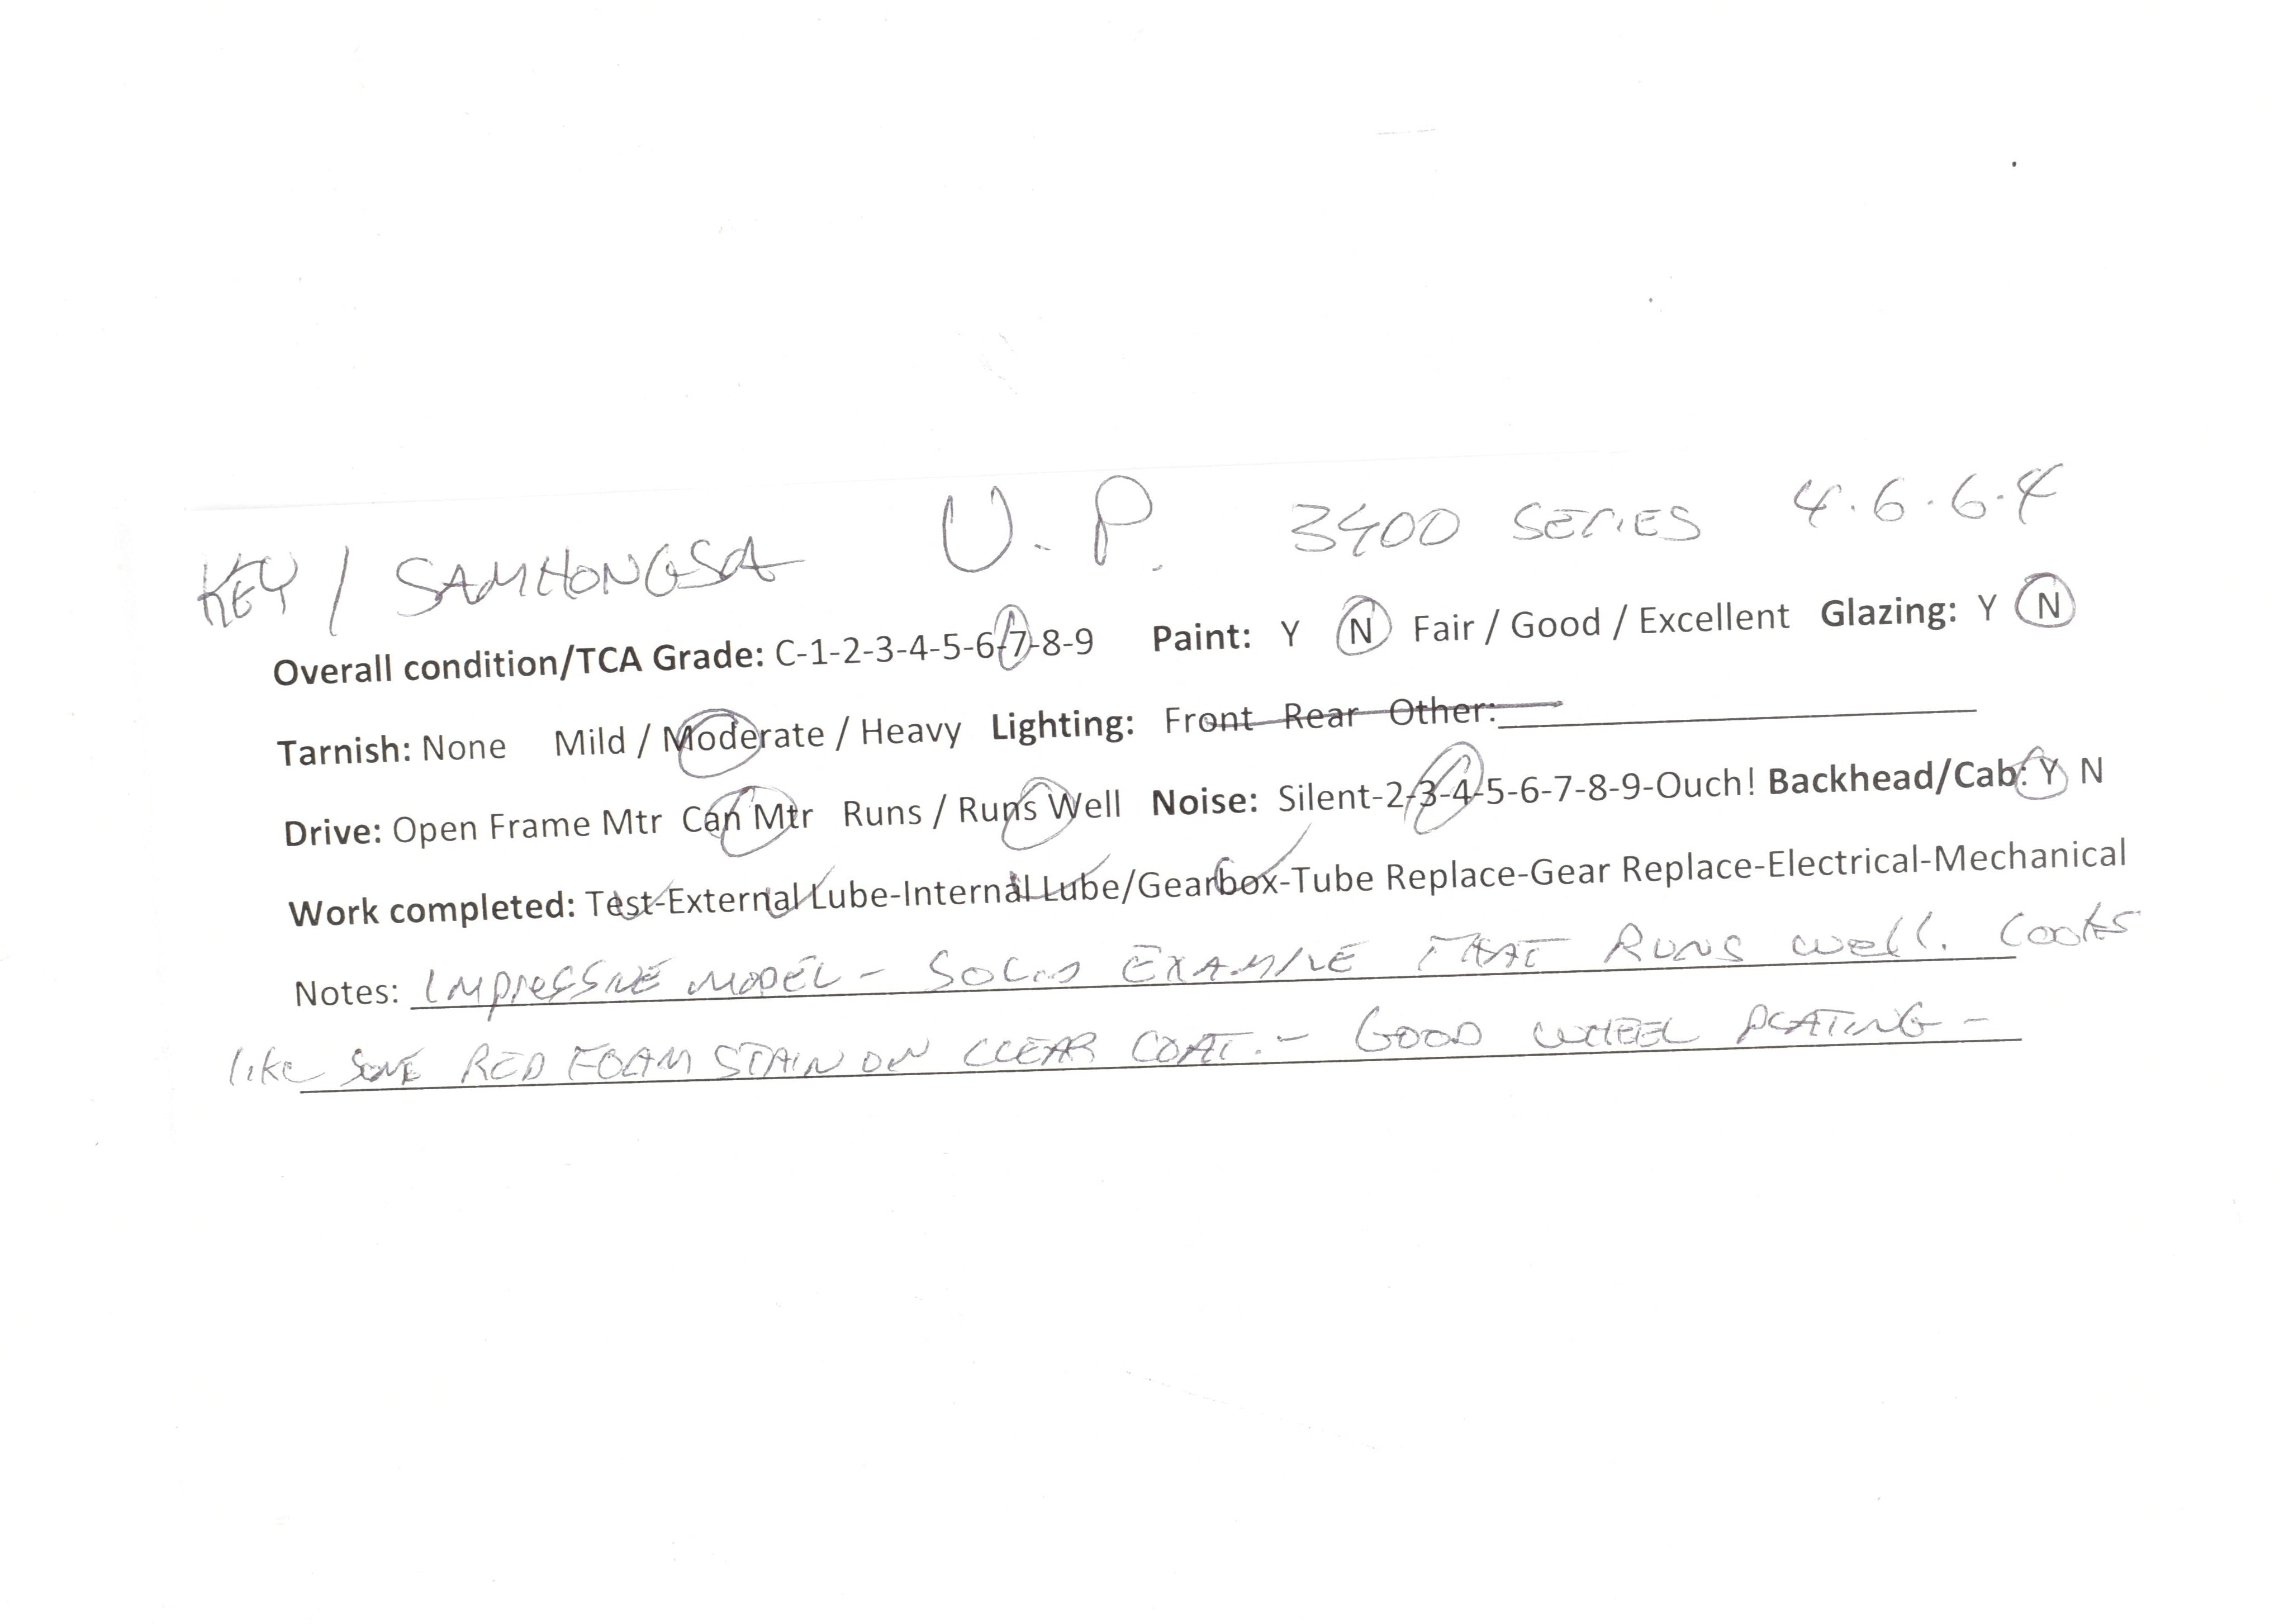 KEY / SAMHONGSA U.P. 3400 SERIES 4.6.6.4
Overall condition/TCA Grade: C-1-2-3-4-5-6-7-8-9 Paint: Y N Fair / Good / Excellent Glazing: Y N
Tarnish: None Mild / Moderate / Heavy Lighting: Front Rear Other:
Drive: Open Frame Mtr Can Mtr Runs / Runs Well Noise: Silent-2-3-4-5-6-7-8-9-Ouch! Backhead/Cab: Y N
Work completed: Test-External Lube-Internal Lube/Gearbox-Tube Replace-Gear Replace-Electrical-Mechanical
Notes: IMPRESSIVE MODEL - SOLID EXAMPLE THAT RUNS WELL. LOOKS
like SOME RED FOAM STAIN ON CLEAR COAT. - GOOD WHEEL PLATING -